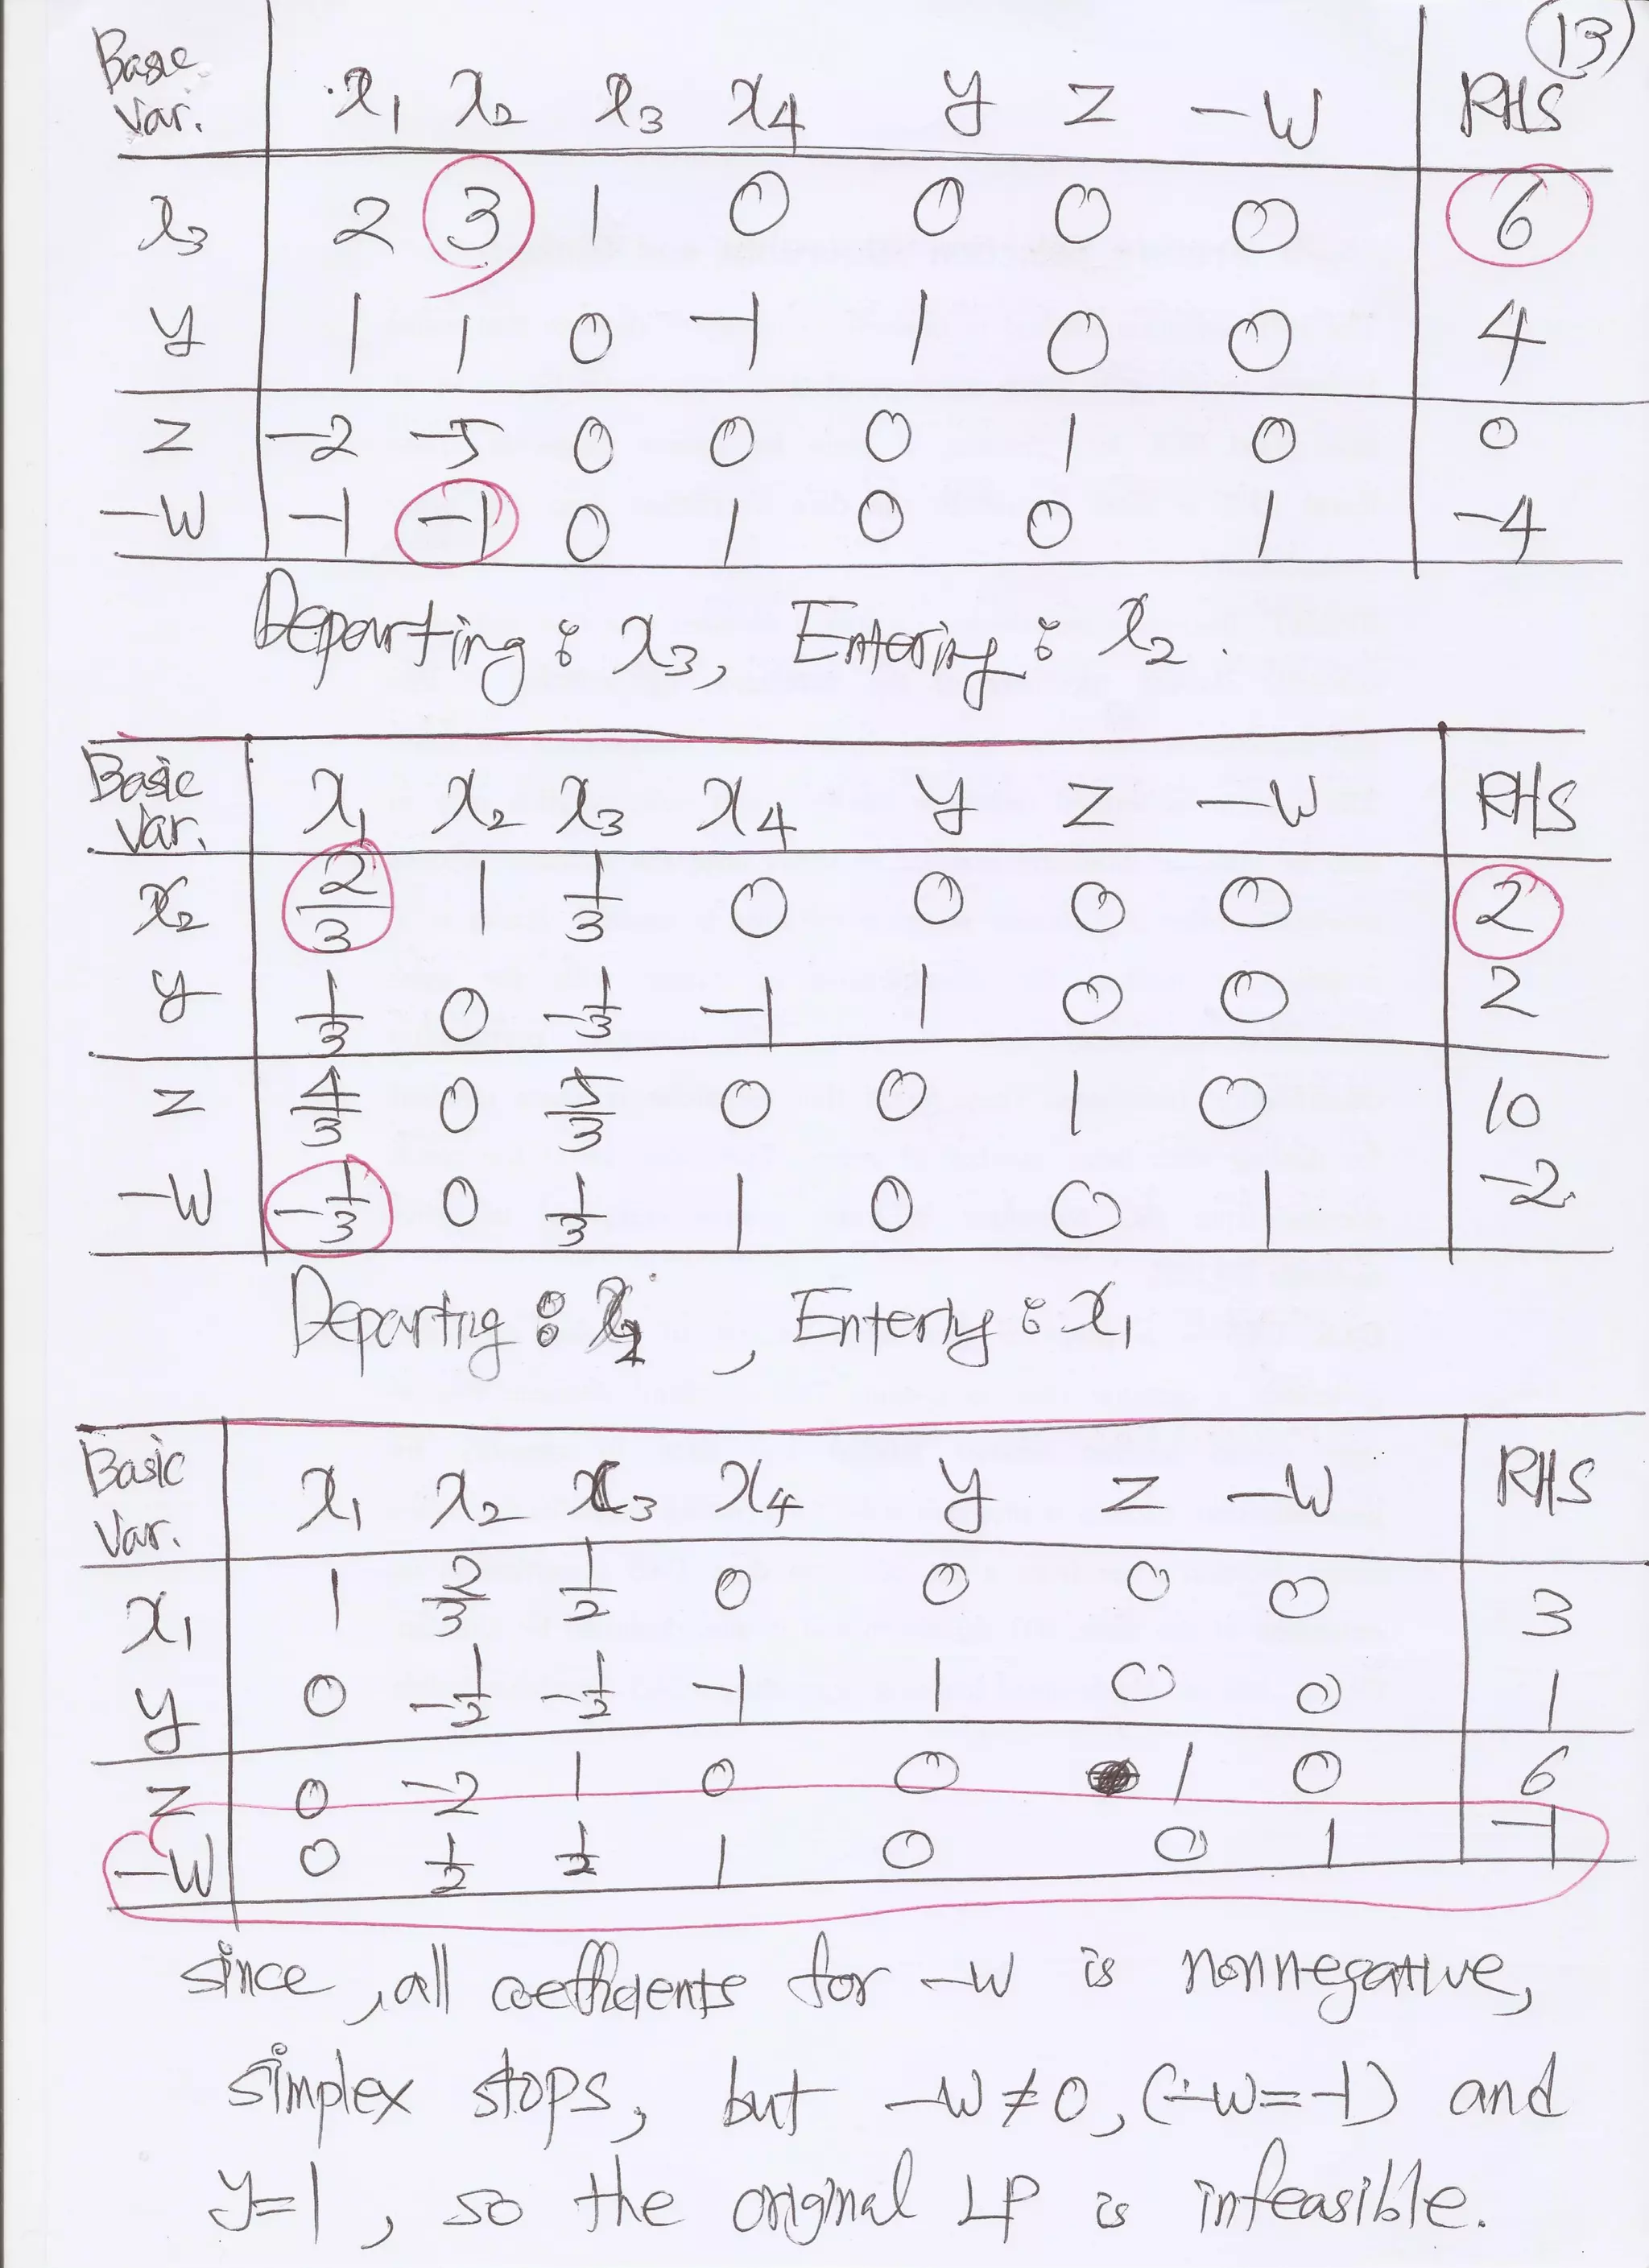 (13)
Basic Var. x₁ x₂ x₃ x₄ y z -W RHS
x₃ 2 3 1 0 0 0 0 6
y 1 1 0 -1 1 0 0 4
z -2 -5 0 0 0 1 0 0
-W -1 -1 0 1 0 0 1 -4
Departing : x₃, Entering : x₂.
Basic Var. x₁ x₂ x₃ x₄ y z -W RHS
x₂ 2/3 1 1/3 0 0 0 0 2
y 1/3 0 -1/3 -1 1 0 0 2
z 4/3 0 5/3 0 0 1 0 10
-W -1/3 0 1/3 1 0 0 1 -2
Departing : x₂, Entering : x₁
Basic Var. x₁ x₂ x₃ x₄ y z -W RHS
x₁ 1 2/3 1/2 0 0 0 0 3
y 0 -1/2 -1/2 -1 1 0 0 1
z 0 -2 1 0 0 1 0 6
-W 0 1/2 1/2 1 0 0 1 -1
since, all coefficients for -W is nonnegative,
simplex stops, but -W≠0, (-W=-1) and
y=1, so the original LP is infeasible.